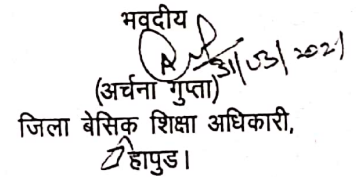 भवदीय
31/03/2021
(अर्चना गुप्ता)
जिला बेसिक शिक्षा अधिकारी,
हापुड।